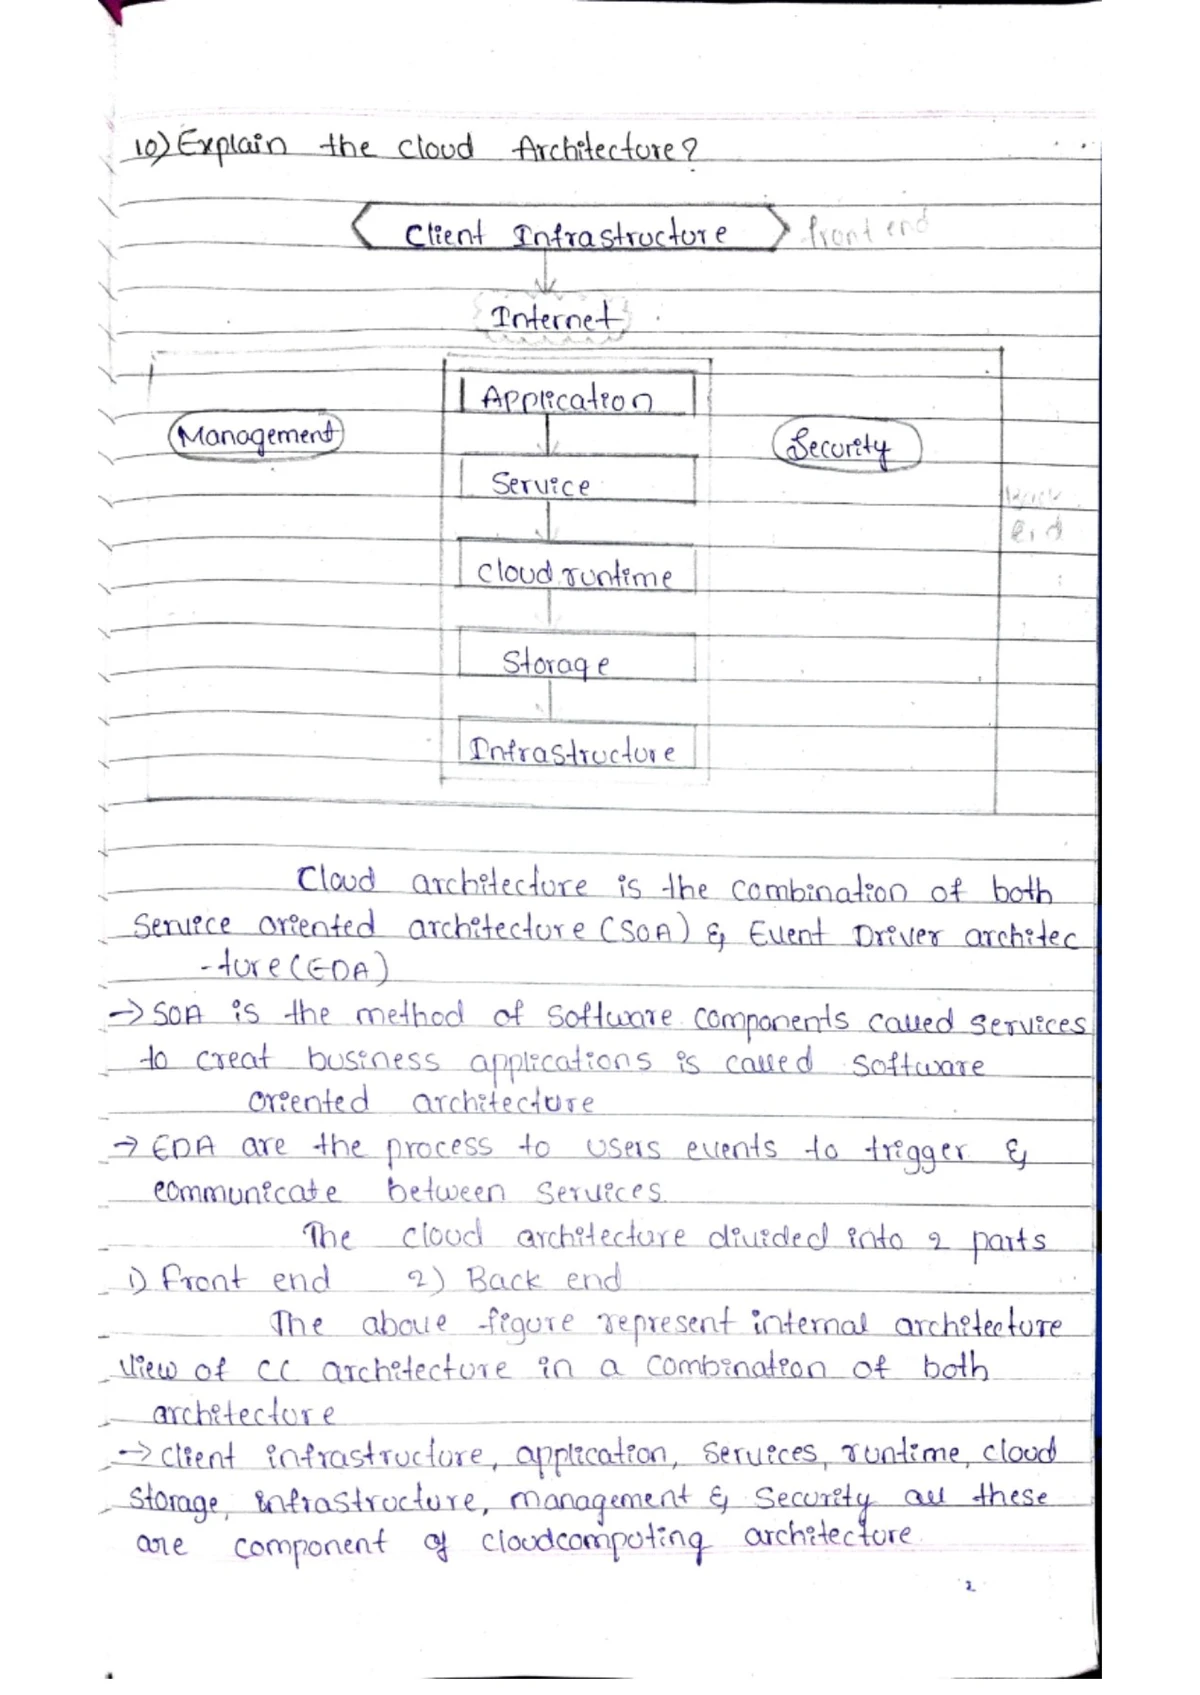 10) Explain the cloud Architecture?
Client Infrastructure
front end
Internet
Application
Management
Security
Service
Back
end
cloud runtime
Storage
Infrastructure
Cloud architecture is the combination of both
Service oriented architecture (SOA) & Event Driver architec
-ture (EDA)
→ SOA is the method of software components called services
to creat business applications is called software
oriented architecture
→ EDA are the process to users events to trigger &
communicate between services.
The cloud architecture divided into 2 parts
1) front end 2) Back end
The above figure represent internal architecture
view of CC architecture in a combination of both
architecture
→ client infrastructure, application, services, runtime, cloud
storage, infrastructure, management & security all these
are component of cloudcomputing architecture.
2